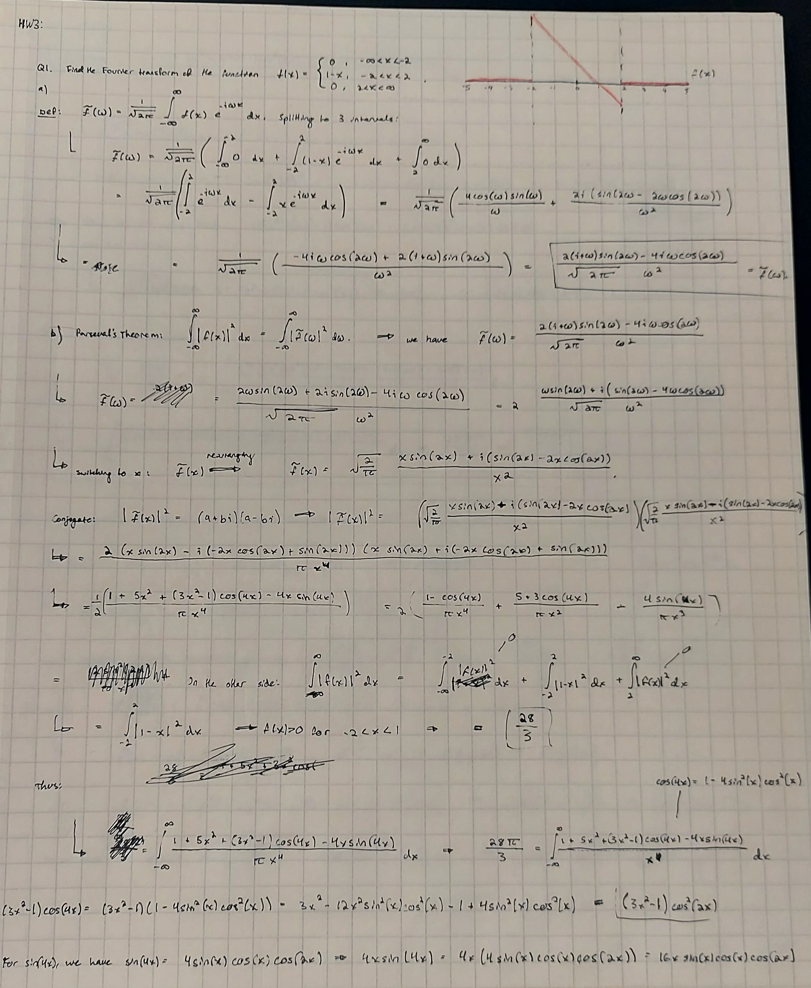 HW3:
Q1. Find the Fourier transform of the function f(x) = { 0, -∞<x<-2
1-x, -2<x<2
0, 2<x<∞ .
f(x)
a)
Def: F̃(ω) = 1/√2π ∫_{-∞}^{∞} f(x) e^{-iωx} dx. Splitting to 3 intervals:
F̃(ω) = 1/√2π ( ∫_{-∞}^{-2} 0 dx + ∫_{-2}^{2} (1-x) e^{-iωx} dx + ∫_{2}^{∞} 0 dx )
= 1/√2π ( ∫_{-2}^{2} e^{-iωx} dx - ∫_{-2}^{2} x e^{-iωx} dx ) = 1/√2π ( 4cos(ω)sin(ω)/ω + 2i(sin(2ω - 2ωcos(2ω))/ω² )
= = 1/√2π ( (-4iωcos(2ω) + 2(i+ω)sin(2ω))/ω² ) = (2(i+ω)sin(2ω) - 4iωcos(2ω))/(√2π ω²) = F̃(ω).
b) Parseval's Theorem: ∫_{-∞}^{∞} |f(x)|² dx = ∫_{-∞}^{∞} |F̃(ω)|² dω. → we have F̃(ω) = (2(i+ω)sin(2ω) - 4iωcos(2ω))/(√2π ω²)
F̃(ω) = = (2ωsin(2ω) + 2isin(2ω) - 4iω cos(2ω))/(√2π ω²) = 2 (ωsin(2ω) + i(sin(2ω) - 4ωcos(2ω))/(√2π ω²)
switching to x: F̃(x) rearranging ⟹ F̃(x) = √(2/π) (x sin(2x) + i(sin(2x) - 2x cos(2x)))/x² .
Conjugate: |F̃(x)|² = (a+bi)(a-bi) → |F̃(x)|² = (√(2/π) (x sin(2x) + i(sin(2x) - 2x cos(2x))/x²)(√(2/π) (x sin(2x) - i(sin(2x) - 2xcos(2x))/x²
= 2 (x sin(2x) - i(-2x cos(2x) + sin(2x))) (x sin(2x) + i(-2x cos(2x) + sin(2x)))/(π x⁴)
= 1/2 ( (1 + 5x² + (3x²-1)cos(4x) - 4x sin(4x))/(π x⁴) ) = 2 ( (1 - cos(4x))/(π x⁴) + (5+3cos(4x))/(π x²) - 4 sin(4x)/(π x³) )
= In the other side: ∫_{-∞}^{∞} |f(x)|² dx = ∫_{-∞}^{-2} |f(x)|² dx + ∫_{-2}^{2} |1-x|² dx + ∫_{2}^{∞} |f(x)|² dx
0 0
= ∫_{-2}^{2} |1-x|² dx → f(x)>0 for -2<x<1 ⇒ = (28/3)
Thus:
cos(4x) = 1 - 4sin²(x) cos²(x)
= ∫_{-∞}^{∞} (1 + 5x² + (3x²-1)cos(4x) - 4x sin(4x))/(π x⁴) dx ⇒ 28π/3 = ∫_{-∞}^{∞} (1 + 5x² + (3x²-1)cos(4x) - 4x sin(4x))/x⁴ dx
(3x²-1)cos(4x) = (3x²-1)(1-4sin²(x)cos²(x)) = 3x² - 12x²sin²(x)cos²(x) - 1 + 4sin²(x)cos²(x) = (3x²-1)cos²(2x)
For sin(4x), we have sin(4x) = 4sin(x)cos(x)cos(2x) ⇒ 4xsin(4x) = 4x(4sin(x)cos(x)cos(2x)) = 16x sin(x)cos(x)cos(2x)